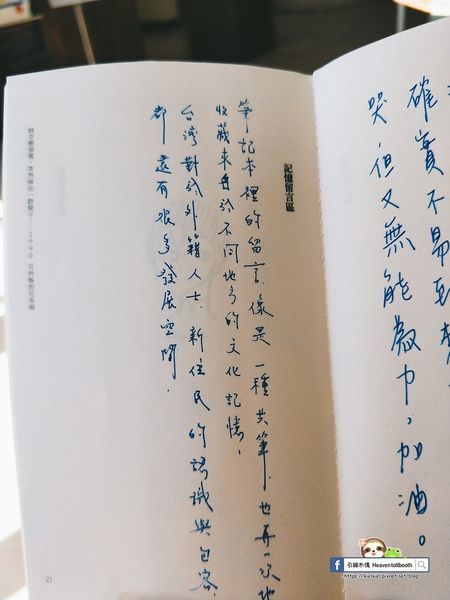 確實不易
哭,但又無能為力,加油。
記憶留言區
筆記本裡的留言,像是一種共筆,也再一次地
收藏來自於不同地方的文化記憶,
台灣對於外籍人士、新住民的認識與包容,
都還有很多發展空間.
1990
引線木偶 Heaventollbooth
https://kielkiel.pixnet.net/blog